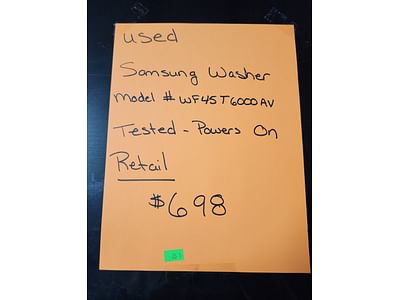 used
Samsung Washer
Model # WF45T6000AV
Tested - Powers On
Retail
$698